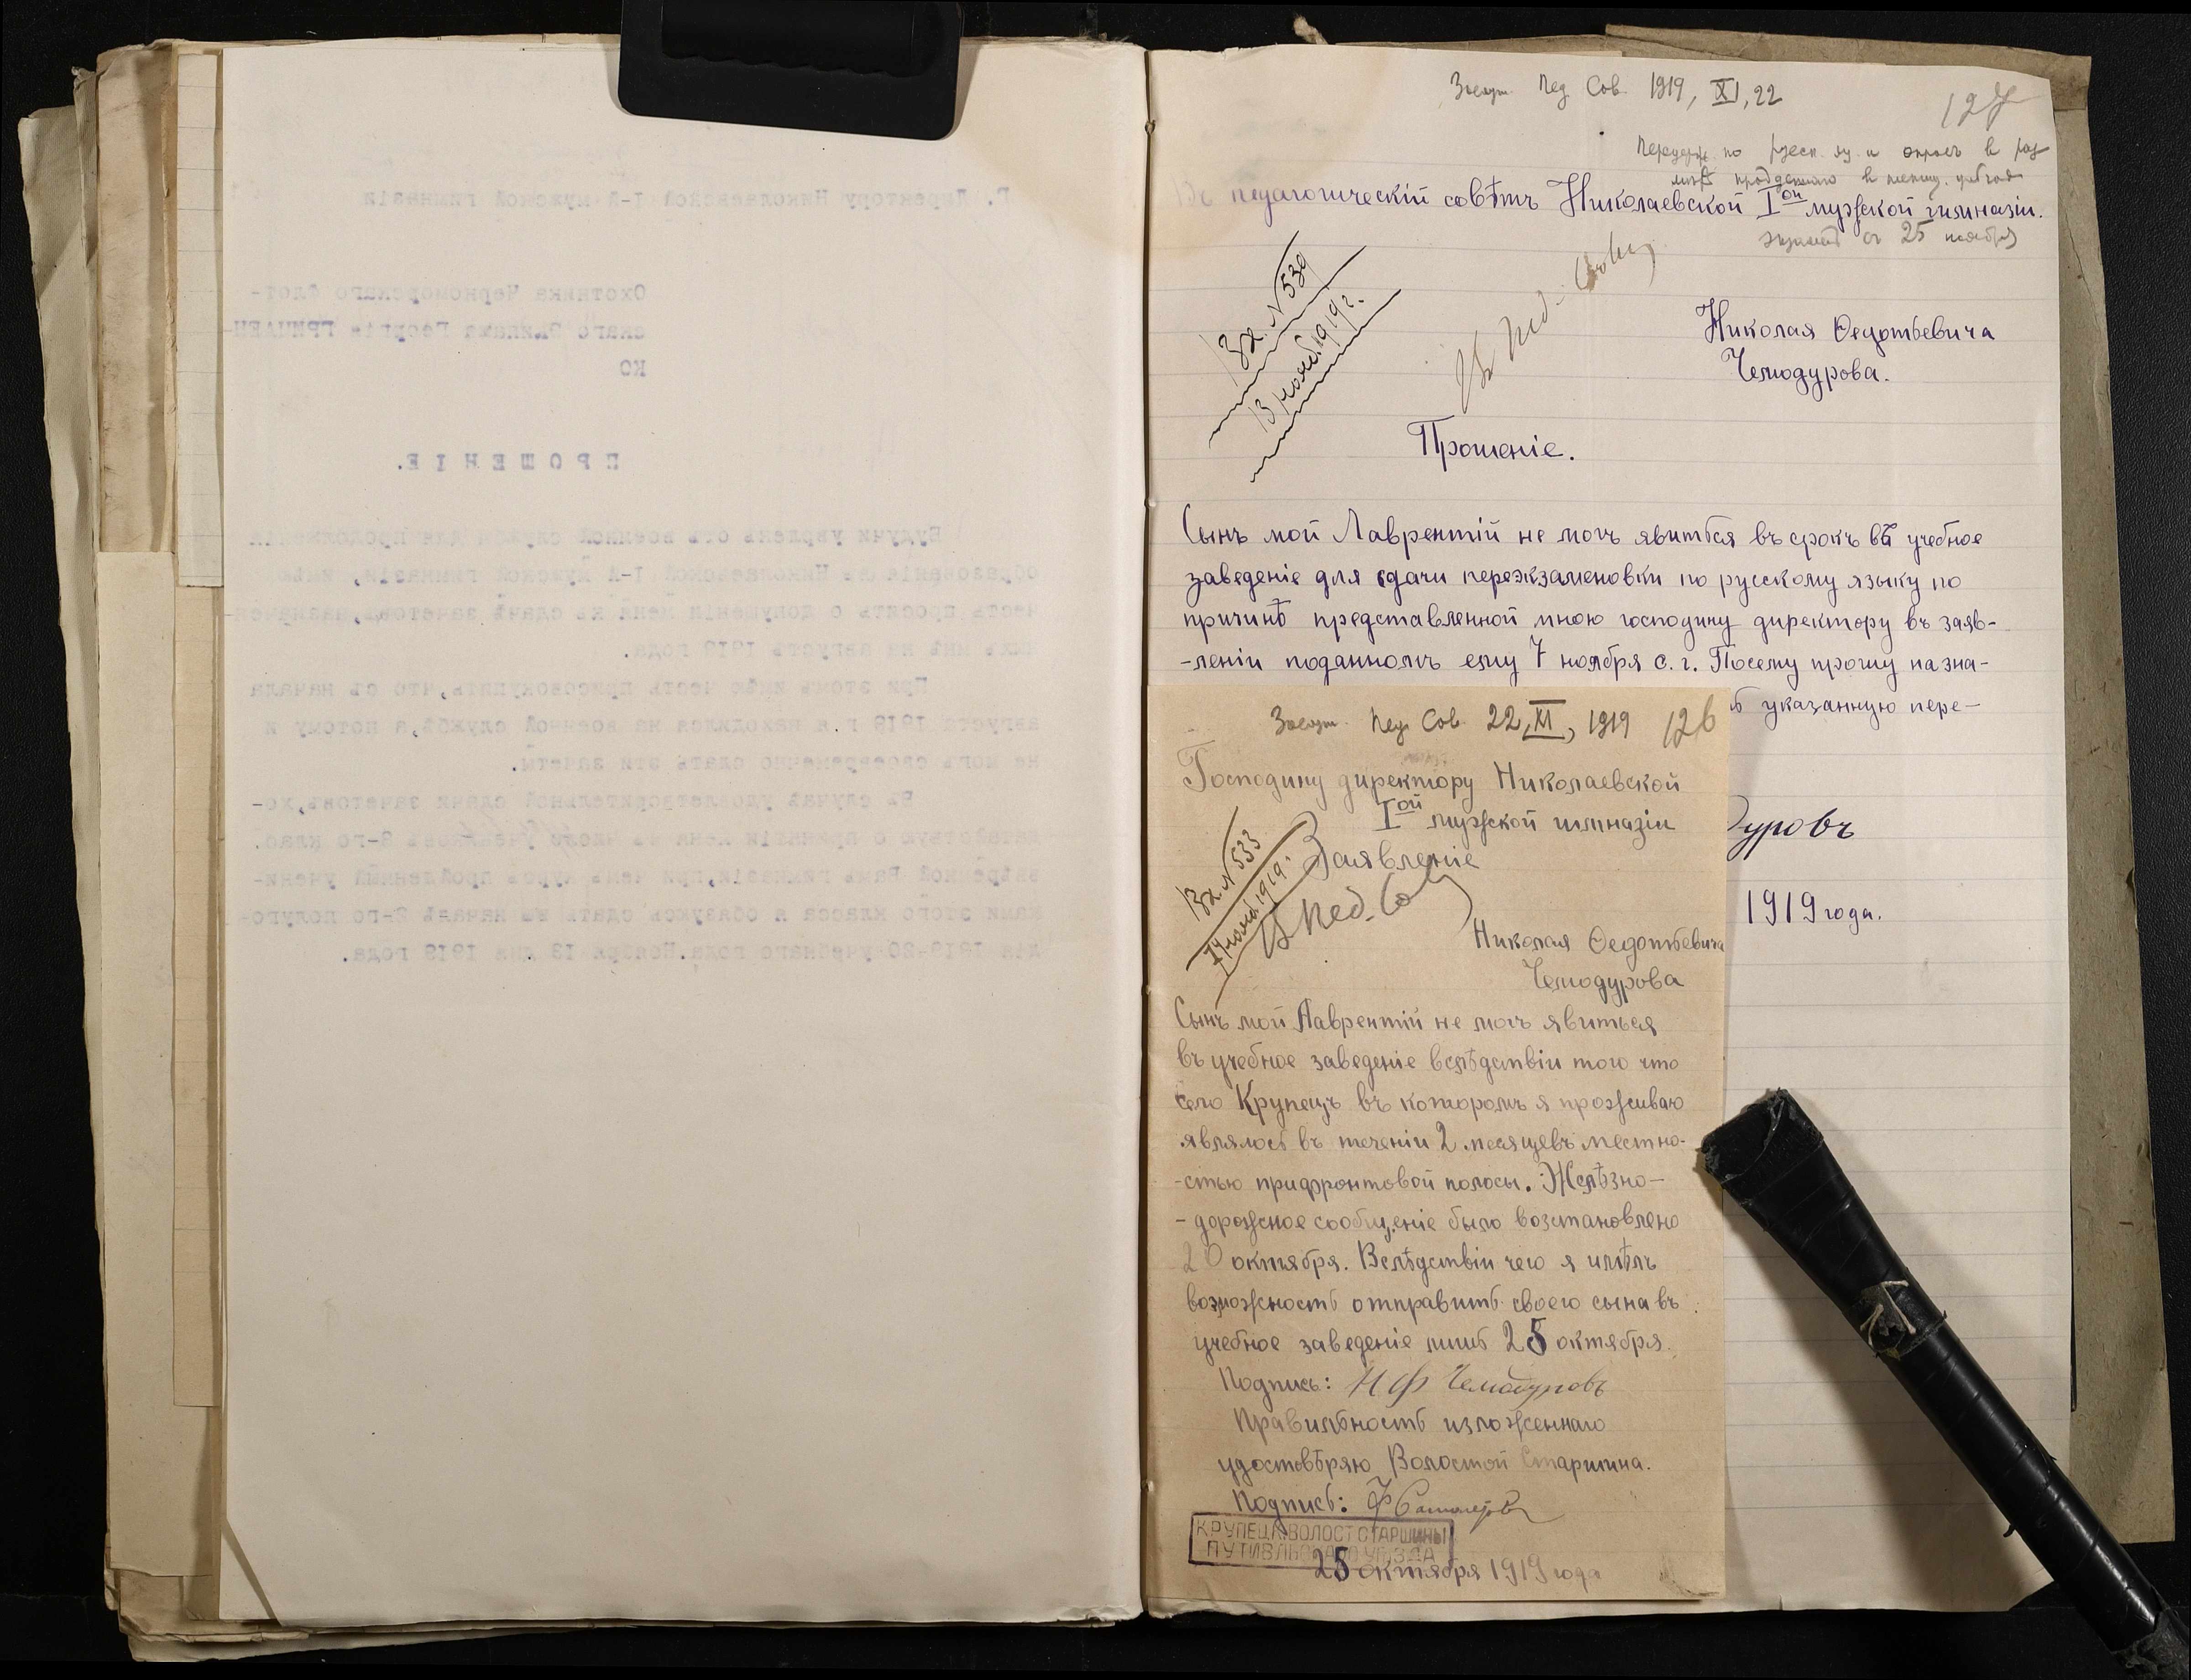 Г. Директору Николаевской I-й мужской гимназіи
Охотника Черноморскаго флот-
скаго Экипажа Георгія ГРИЦАЕН-
КО
ПРОШЕНІЕ.
Будучи уволенъ отъ военной службы для продолженія
образованія въ Николаевской I-й мужской гимназіи, имѣю
честь просить о допущеніи меня къ сдачѣ зачетовъ, назначен-
ныхъ мнѣ на августъ 1919 года.
При этомъ имѣю честь присовокупить, что съ начала
августа 1919 г. я находился на военной службѣ, а потому и
не могъ своевременно сдать эти зачеты.
Въ случаѣ удовлетворительной сдачи зачетовъ, хо-
датайствую о принятіи меня въ число учениковъ 8-го клас.
ввѣренной Вамъ гимназіи, при чемъ курсъ пройденный учени-
ками этого класса я обязуюсь сдать въ началѣ 2-го полуго-
дія 1919-20 учебнаго года. Ноября 13 дня 1919 года.
Пед. Сов. 1919, XI, 22
127
по русск. яз. и в
Въ педагогическій совѣтъ Николаевской Iой мужской гимназіи.
съ 25 ноября
Вх. № 539
13 нояб. 1919 г.
Въ Пед. Совѣтъ
Николая Ѳедотьевича
Чемодурова.
Прошеніе.
Сынъ мой Лаврентій не могъ явиться въ срокъ въ учебное
заведеніе для сдачи переэкзаменовки по русскому языку по
причинѣ представленной мною господину директору въ заяв-
-леніи поданномъ ему 7 ноября с. г. Посему прошу назна-
указанную пере-
дуровъ
1919 года.
Пед. Сов. 22, XI, 1919
126
Господину директору Николаевской
Iой мужской гимназіи
Заявленіе
Вх. № 533
нояб. 1919 г.
Въ Пед. Сов.
Николая Ѳедотьевича
Чемодурова
Сынъ мой Лаврентій не могъ явиться
въ учебное заведеніе вслѣдствіи того что
село Крупецъ въ которомъ я проживаю
являлось въ теченіи 2 месяцевъ местно-
-стью прифронтовой полосы. Желѣзно-
-дорожное сообщеніе было возстановлено
20 октября. Вслѣдствіи чего я имѣлъ
возможность отправить своего сына въ
учебное заведеніе лишь 25 октября.
Подпись: Н Ф Чемодуровъ
Правильность изложеннаго
удостовѣряю Волостной Старшина.
Подпись:
КРУПЕЦК. ВОЛОСТ СТАРШИНЫ
ПУТИВЛЬСКАГО УѢЗДА
25 октября 1919 года